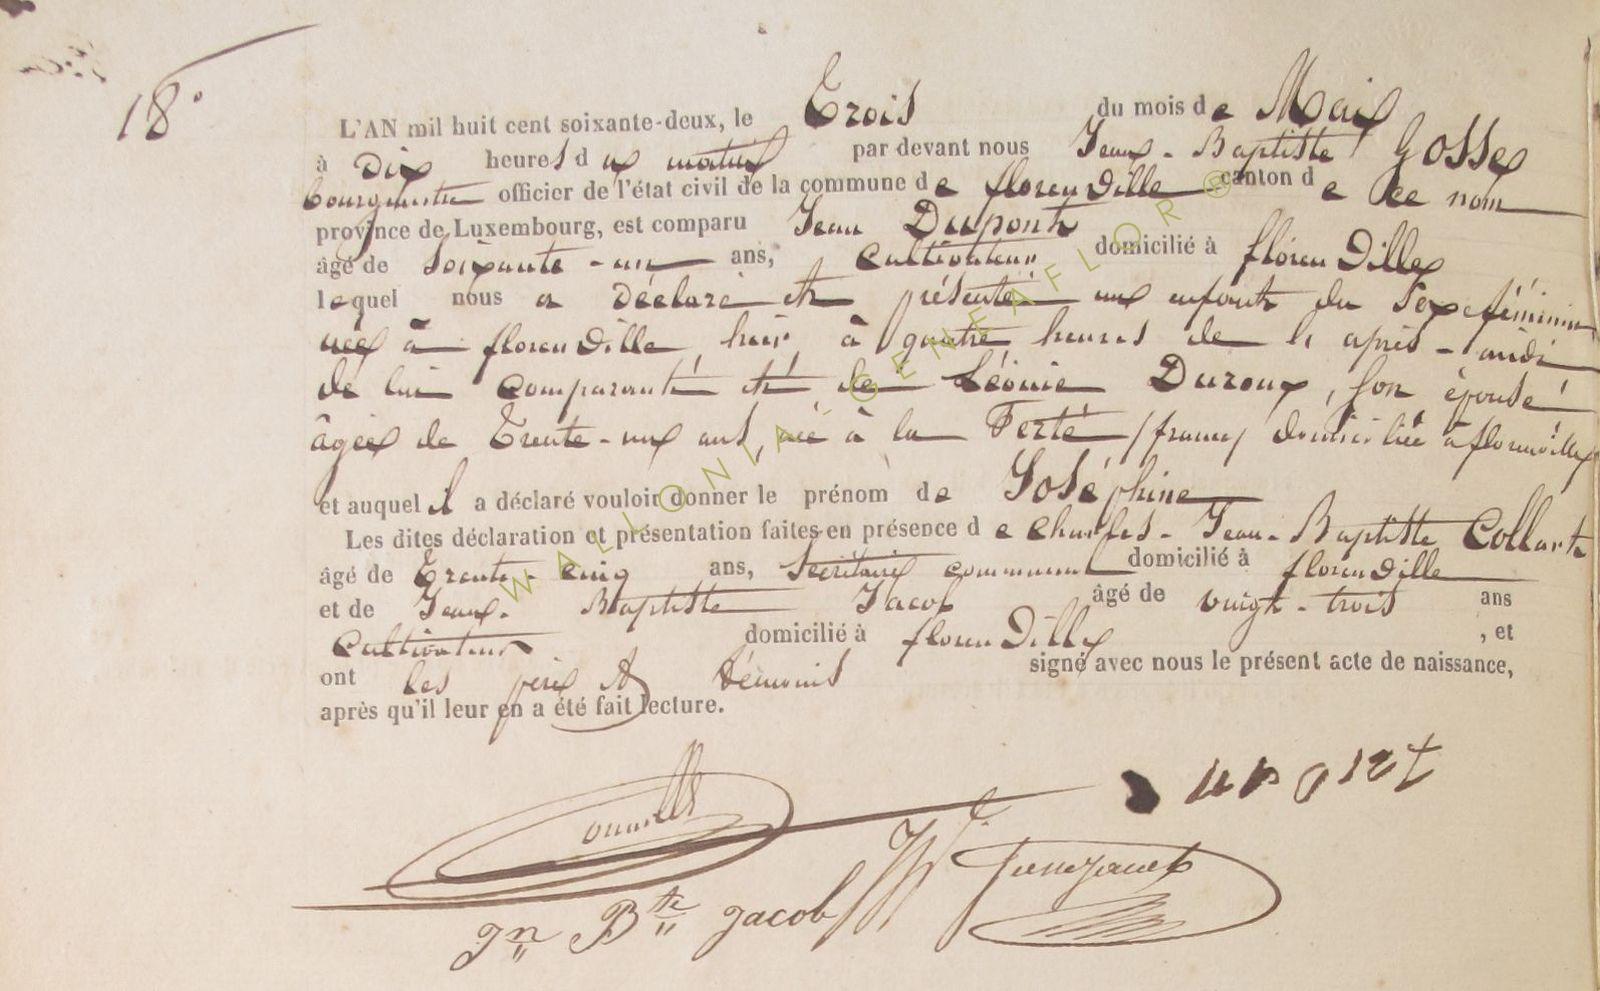 18°
L'AN mil huit cent soixante-deux, le Trois du mois de Mai
à Dix heures du matin par devant nous Jean-Baptiste Gosse
bourgmestre officier de l'état civil de la commune de florenville canton de ce nom
province de Luxembourg, est comparu Jean Dupont
âgé de soixante-un ans, Cultivateur domicilié à florenville
lequel nous a déclaré et présenté un enfant du sexe féminin
née à florenville hier à quatre heures de l'après-midi
de lui comparant et de Léonie Duroux, son épouse
âgée de Trente-un ans, née à la Ferté /france/ domiciliée à florenville
et auquel il a déclaré vouloir donner le prénom de Joséphine
Les dites déclaration et présentation faites en présence de Charles-Jean-Baptiste Collart
âgé de Trente-cinq ans, Secrétaire communal domicilié à florenville
et de Jean-Baptiste Jacob âgé de vingt-trois ans
Cultivateur domicilié à florenville , et
ont les père et témoins signé avec nous le présent acte de naissance,
après qu'il leur en a été fait lecture.
Jn Bte Jacob
WALLONIA-GENEAFLOR©